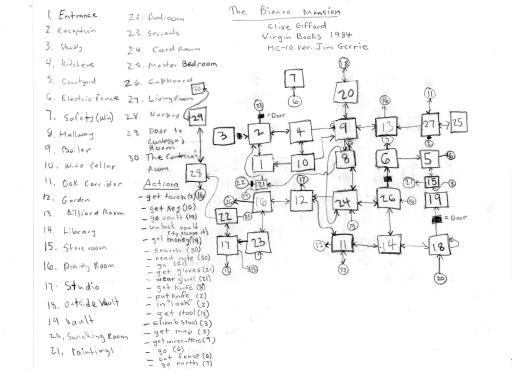 The Bianco Mansion
Clive Gifford
Virgin Books 1984
MC-10 Ver. Jim Gerrie
1. Entrance
2. Reception
3. Study
4. Kitchens
5. Courtyard
6. Electric fence
7. Safety (Win)
8. Hallway
9. Boiler
10. Wine Cellar
11. Oak Corridor
12. Garden
13. Billiard Room
14. Library
15. Store room
16. Dining Room
17. Studio
18. Outside Vault
19 Vault
20. Smoking Room
21. Paintings
22. Bedroom
23. Servants
24. Card Room
25. Master Bedroom
26. Cupboard
27. Living Room
28. Nursery
29. Door to
Room
30 The
Room
Actions
- get torch
- get key (10)
- go vault (19)
- unlock vault
- get money (19)
- search (30)
- read note (30)
- go (21)
- get gloves (21)
- wear gloves (21)
- get knife (8)
- put knife (2)
- in "look" (2)
- get stool (13)
- climb stool (3)
- get map (3)
- get wire-ttrs (9)
- go (6)
- cut fence (6)
- go north (7)
30
29
28
7
6
18
20
3
2
Door
4
9
13
27
25
11
1
10
8
6
5
21
16
12
24
26
15
19
Door
22
17
23
11
14
18
20